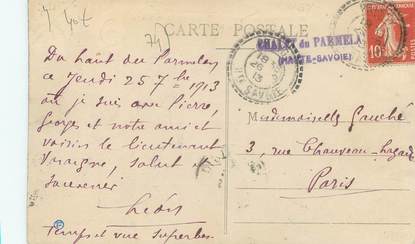 CARTE POSTALE
CHALET du PARMELAN
(HAUTE-SAVOIE)
10
Du haut du Parmelan
ce Jeudi 25 7bre 1913
où je suis avec Pierre,
Georges et notre ami et
voisin le lieutenant
salut et
souvenir
Léon
Temps et vue superbes
Mademoiselle Gauche
3, rue Chauveau-Lagarde
Paris